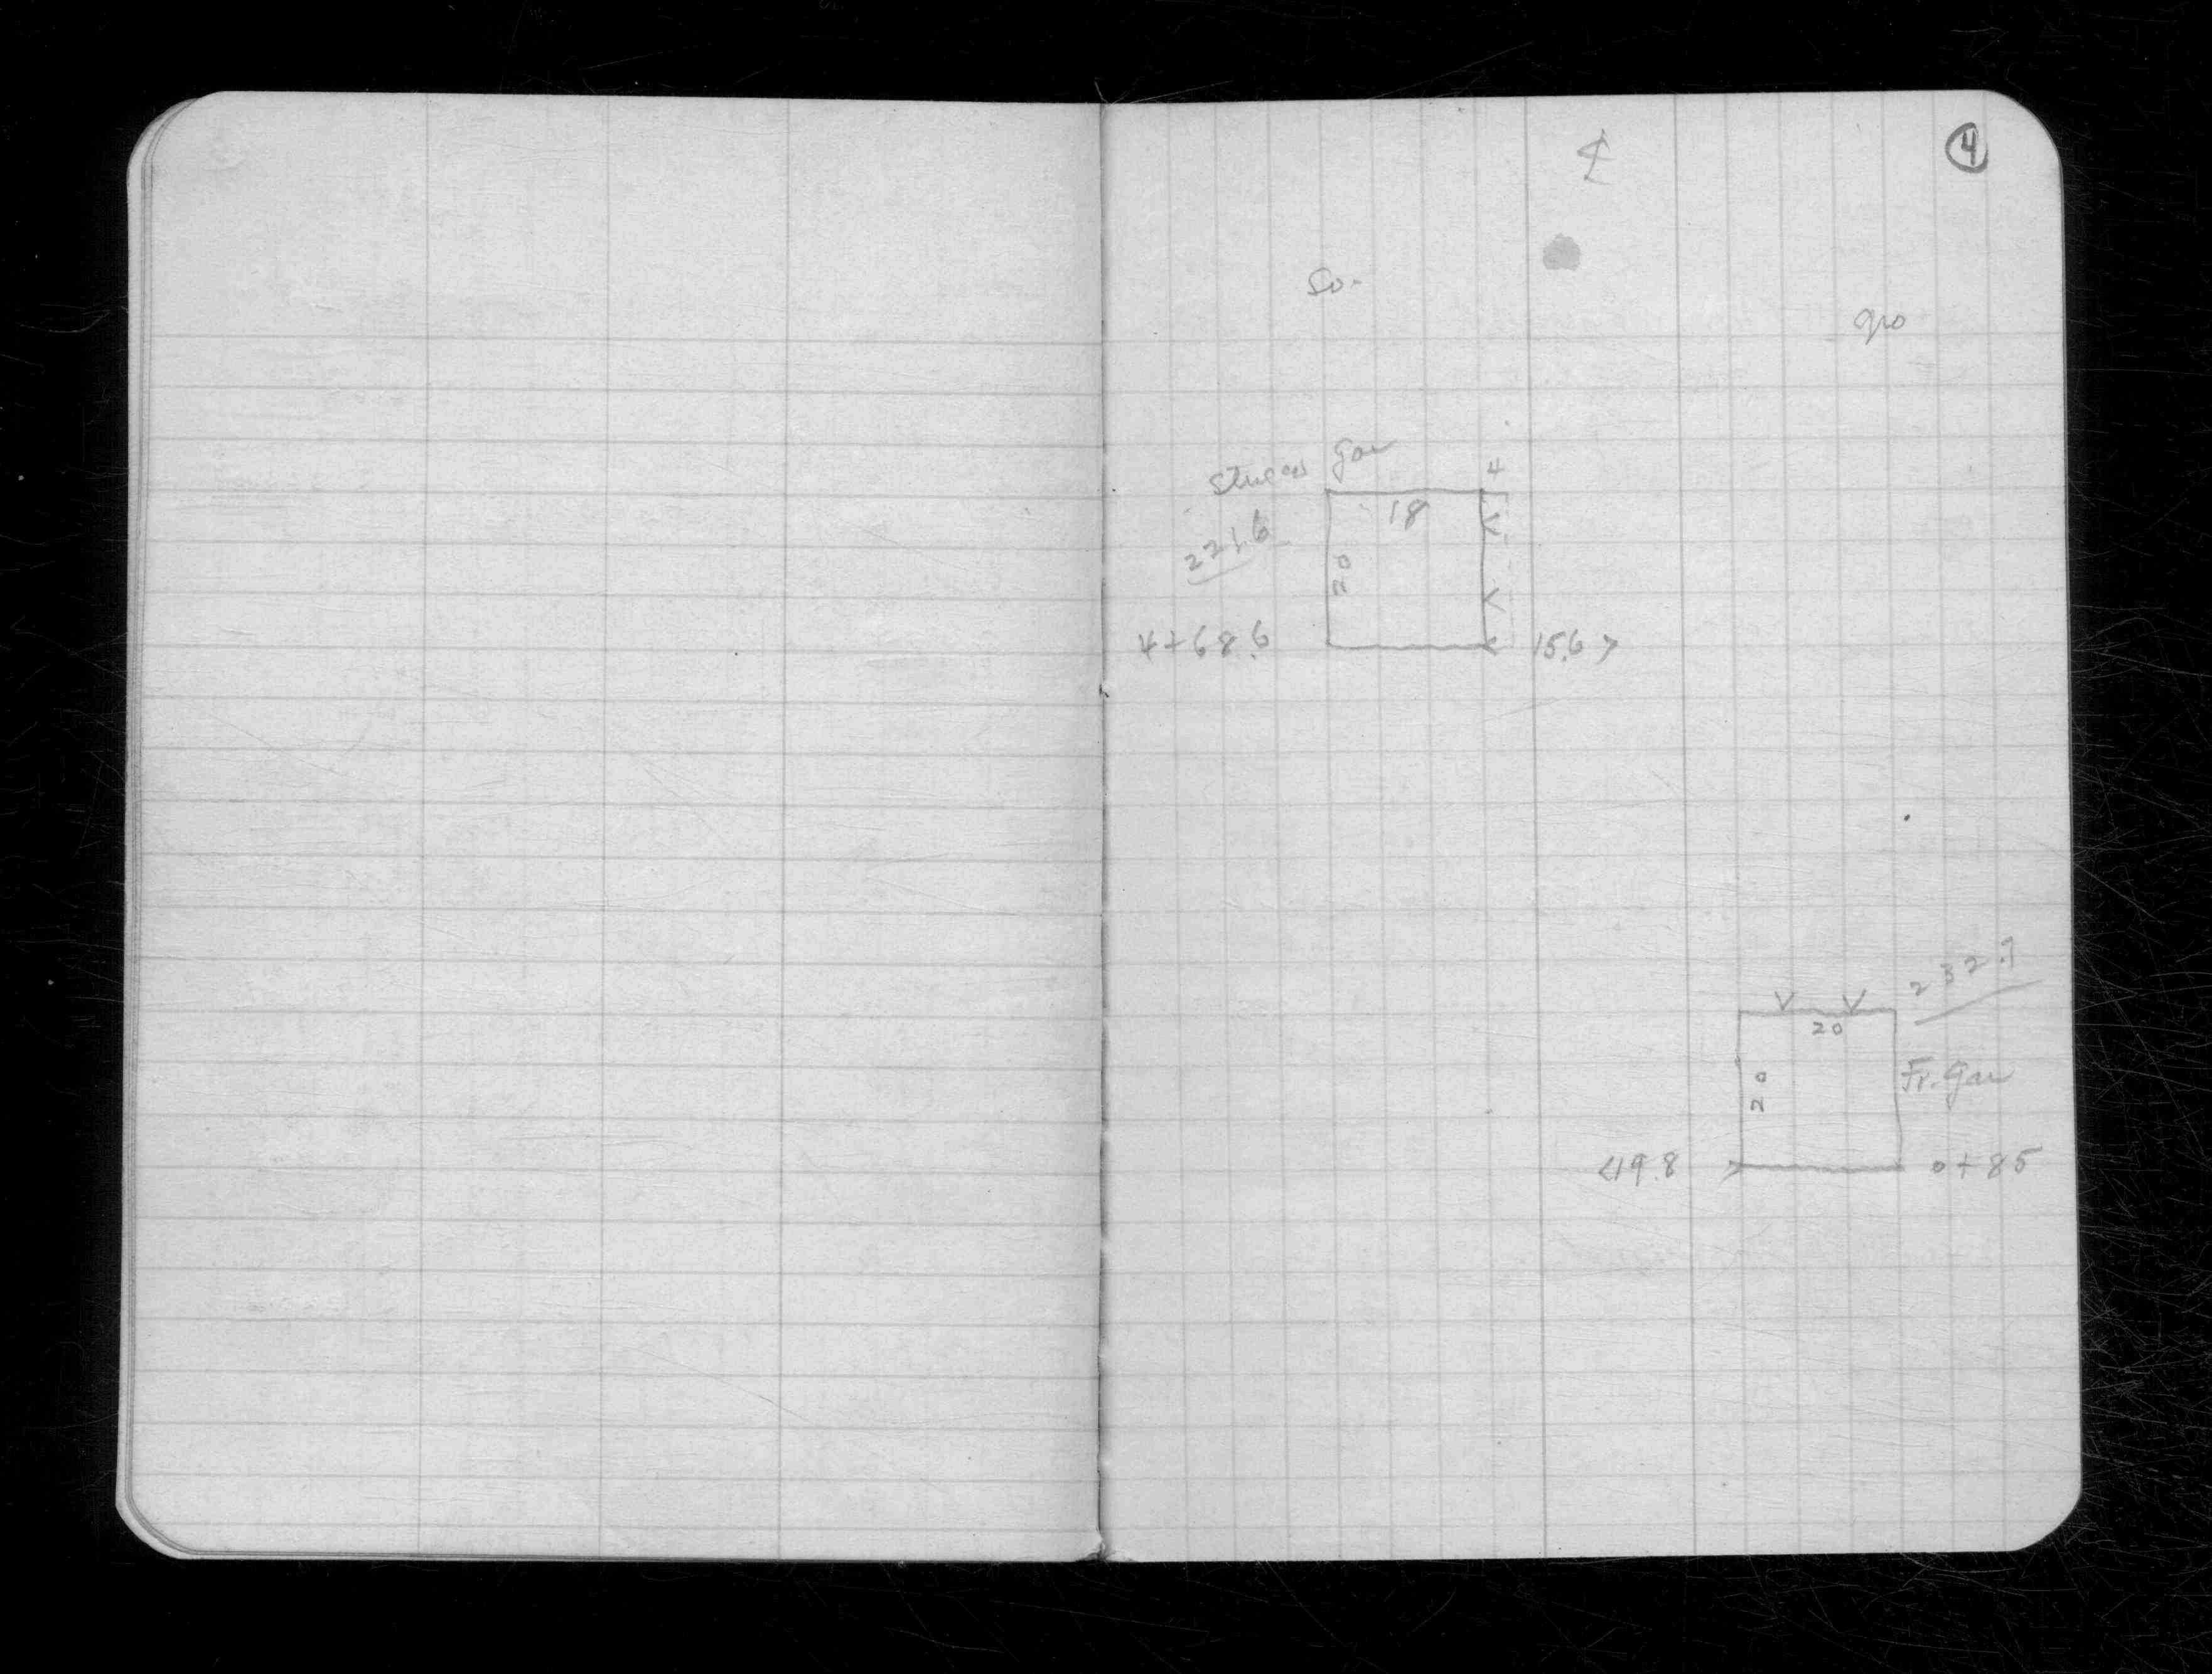 ④
℄
So.
No
Stucco Gar
4
18
221.6
20
4+68.6
15.6 >
232.7
20
20
Fr. Gar
<19.8 >
0+85